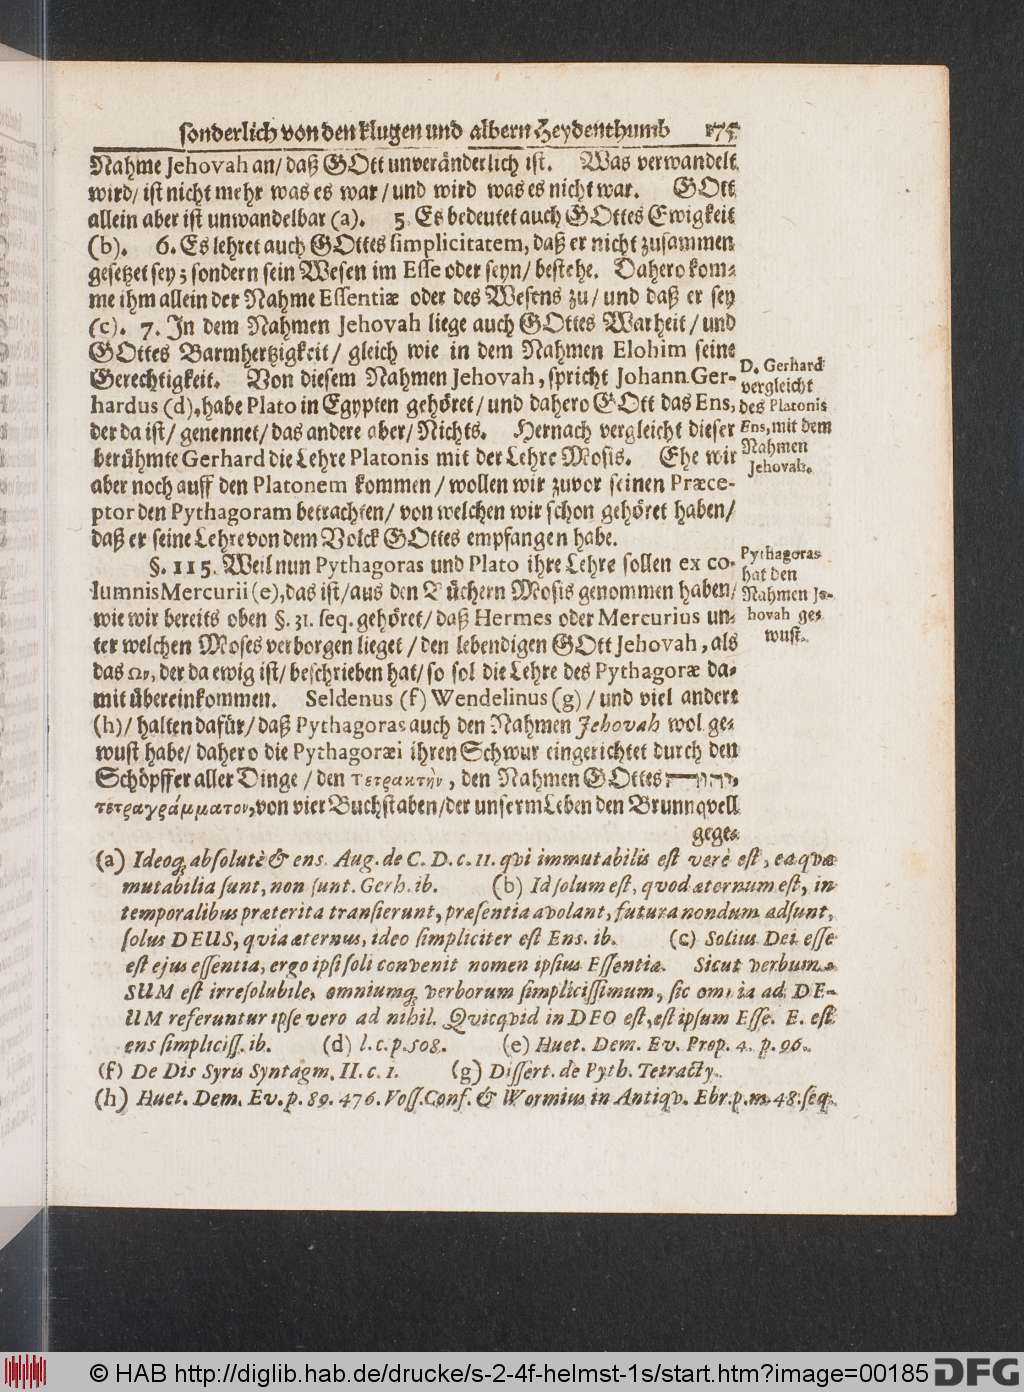 sonderlich von den klugen und albern Heydenthumb 175
Nahme Jehovah an/ daß GOtt unveränderlich ist. Was verwandelt
wird/ ist nicht mehr was es war/ und wird was es nicht war. GOtt
allein aber ist unwandelbar (a). 5. Es bedeutet auch GOttes Ewigkeit
(b). 6. Es lehret auch GOttes simplicitatem, daß er nicht zusammen
gesetzet sey; sondern sein Wesen im Esse oder seyn/ bestehe. Dahero kom-
me ihm allein der Nahme Essentiæ oder des Wesens zu/ und daß er sey
(c). 7. In dem Nahmen Jehovah liege auch GOttes Warheit/ und
GOttes Barmhertzigkeit/ gleich wie in dem Nahmen Elohim seine
Gerechtigkeit. Von diesem Nahmen Jehovah, spricht Johann. Ger-
hardus (d), habe Plato in Egypten gehöret/ und dahero GOtt das Ens,
der da ist/ genennet/ das andere aber/ Nichts. Hernach vergleicht dieser
berühmte Gerhard die Lehre Platonis mit der Lehre Mosis. Ehe wir
aber noch auff den Platonem kommen/ wollen wir zuvor seinen Præce-
ptor den Pythagoram betrachten/ von welchen wir schon gehöret haben/
daß er seine Lehre von dem Volck GOttes empfangen habe.
D. Gerhard
vergleicht
des Platonis
Ens, mit dem
Nahmen
Jehovah.
§. 115. Weil nun Pythagoras und Plato ihre Lehre sollen ex co-
lumnis Mercurii (e), das ist/ aus den Büchern Mosis genommen haben/
wie wir bereits oben §. 31. seq. gehöret/ daß Hermes oder Mercurius un-
ter welchen Moses verborgen lieget/ den lebendigen GOtt Jehovah, als
das Ων, der da ewig ist/ beschrieben hat/ so sol die Lehre des Pythagoræ da-
mit übereinkommen. Seldenus (f) Wendelinus (g)/ und viel andere
(h)/ halten dafür/ daß Pythagoras auch den Nahmen Jehovah wol ge-
wust habe/ dahero die Pythagoræi ihren Schwur eingerichtet durch den
Schöpffer aller Dinge/ den τετρακτὴν, den Nahmen GOttes יהוה,
τετραγράμματον, von vier Buchstaben/ der unserm Leben den Brunnqvell
gege-
Pythagoras
hat den
Nahmen Je-
hovah ge-
wust.
(a) Ideoq; absolutè & ens. Aug. de C. D. c. 11. qvi immutabilis est verè est, ea qvæ
mutabilia sunt, non sunt. Gerh. ib. (b) Id solum est, qvod æternum est, in
temporalibus præterita transierunt, præsentia avolant, futura nondum adsunt,
solus DEUS, qvia æternus, ideo simpliciter est Ens. ib. (c) Solius Dei esse
est ejus essentia, ergo ipsi soli convenit nomen ipsius Essentiæ. Sicut verbum
SUM est irresolubile, omniumq; verborum simplicissimum, sic omnia ad DE-
UM referuntur ipse vero ad nihil. Qvicqvid in DEO est, est ipsum Esse. E. est
ens simpliciss. ib. (d) l. c. p. 508. (e) Huet. Dem. Ev. Prop. 4. p. 96.
(f) De Dis Syris Syntagm. II. c. 1. (g) Dissert. de Pyth. Tetracty.
(h) Huet. Dem. Ev. p. 89. 476. Voss. Conf. & Wormius in Antiqv. Ebr. p. m. 48. seq.
© HAB http://diglib.hab.de/drucke/s-2-4f-helmst-1s/start.htm?image=00185 DFG